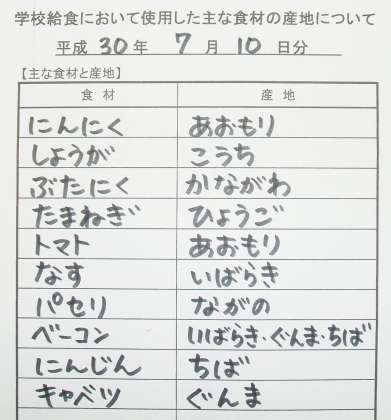 学校給食において使用した主な食材の産地について
平成 30 年 7 月 10 日分
【主な食材と産地】
食材 産地
にんにく あおもり
しょうが こうち
ぶたにく かながわ
たまねぎ ひょうご
トマト あおもり
なす いばらき
パセリ ながの
ベーコン いばらき・ぐんま・ちば
にんじん ちば
キャベツ ぐんま